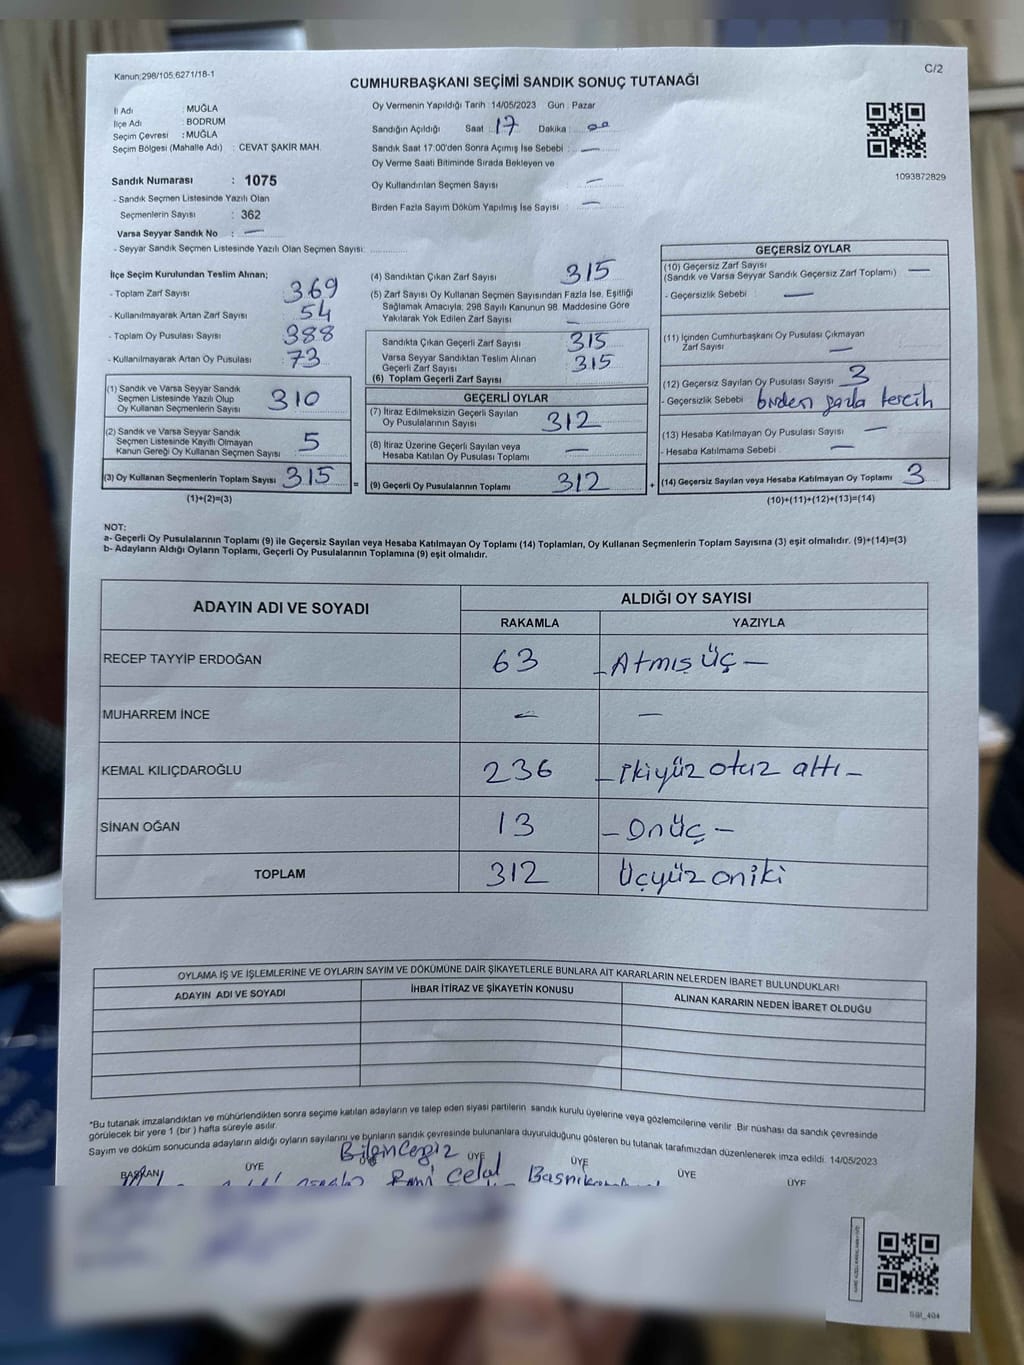 Kanun:298/105.6271/18-1
C/2
CUMHURBAŞKANI SEÇİMİ SANDIK SONUÇ TUTANAĞI
İl Adı : MUĞLA
İlçe Adı : BODRUM
Seçim Çevresi : MUĞLA
Seçim Bölgesi (Mahalle Adı) : CEVAT ŞAKİR MAH.
Oy Vermenin Yapıldığı Tarih : 14/05/2023 Gün : Pazar
Sandığın Açıldığı Saat : 17 Dakika : 00
Sandık Saat 17:00'den Sonra Açımış İse Sebebi : —
Oy Verme Saati Bitiminde Sırada Bekleyen ve
Oy Kullandırılan Seçmen Sayısı : —
Birden Fazla Sayım Döküm Yapılmış İse Sayısı : —
1093872829
Sandık Numarası : 1075
- Sandık Seçmen Listesinde Yazılı Olan
Seçmenlerin Sayısı : 362
Varsa Seyyar Sandık No : —
- Seyyar Sandık Seçmen Listesinde Yazılı Olan Seçmen Sayısı:
İlçe Seçim Kurulundan Teslim Alınan;
- Toplam Zarf Sayısı 369
- Kullanılmayarak Artan Zarf Sayısı : 54
- Toplam Oy Pusulası Sayısı : 388
- Kullanılmayarak Artan Oy Pusulası : 73
(1) Sandık ve Varsa Seyyar Sandık
Seçmen Listesinde Yazılı Olup
Oy Kullanan Seçmenlerin Sayısı 310
(2) Sandık ve Varsa Seyyar Sandık
Seçmen Listesinde Kayıtlı Olmayan
Kanun Gereği Oy Kullanan Seçmen Sayısı 5
(3) Oy Kullanan Seçmenlerin Toplam Sayısı 315
(1)+(2)=(3)
=
(4) Sandıktan Çıkan Zarf Sayısı 315
(5) Zarf Sayısı Oy Kullanan Seçmen Sayısından Fazla İse, Eşitliği
Sağlamak Amacıyla, 298 Sayılı Kanunun 98. Maddesine Göre
Yakılarak Yok Edilen Zarf Sayısı —
Sandıkta Çıkan Geçerli Zarf Sayısı : 315
Varsa Seyyar Sandıktan Teslim Alınan
Geçerli Zarf Sayısı : 315
(6) Toplam Geçerli Zarf Sayısı
GEÇERLİ OYLAR
(7) İtiraz Edilmeksizin Geçerli Sayılan
Oy Pusulalarının Sayısı 312
(8) İtiraz Üzerine Geçerli Sayılan veya
Hesaba Katılan Oy Pusulası Toplamı —
(9) Geçerli Oy Pusulalarının Toplamı 312
+
GEÇERSİZ OYLAR
(10) Geçersiz Zarf Sayısı
(Sandık ve Varsa Seyyar Sandık Geçersiz Zarf Toplamı) —
- Geçersizlik Sebebi : —
(11) İçinden Cumhurbaşkanı Oy Pusulası Çıkmayan
Zarf Sayısı : —
(12) Geçersiz Sayılan Oy Pusulası Sayısı : 3
- Geçersizlik Sebebi birden fazla tercih
(13) Hesaba Katılmayan Oy Pusulası Sayısı : —
- Hesaba Katılmama Sebebi : —
(14) Geçersiz Sayılan veya Hesaba Katılmayan Oy Toplamı 3
(10)+(11)+(12)+(13)=(14)
NOT:
a- Geçerli Oy Pusulalarının Toplamı (9) ile Geçersiz Sayılan veya Hesaba Katılmayan Oy Toplamı (14) Toplamları, Oy Kullanan Seçmenlerin Toplam Sayısına (3) eşit olmalıdır. (9)+(14)=(3)
b- Adayların Aldığı Oyların Toplamı, Geçerli Oy Pusulalarının Toplamına (9) eşit olmalıdır.
ADAYIN ADI VE SOYADI
ALDIĞI OY SAYISI
RAKAMLA YAZIYLA
RECEP TAYYİP ERDOĞAN 63 —Atmış üç—
MUHARREM İNCE — —
KEMAL KILIÇDAROĞLU 236 —İkiyüz otuz altı—
SİNAN OĞAN 13 —Onüç—
TOPLAM 312 Üçyüz oniki
OYLAMA İŞ VE İŞLEMLERİNE VE OYLARIN SAYIM VE DÖKÜMÜNE DAİR ŞİKAYETLERLE BUNLARA AİT KARARLARIN NELERDEN İBARET BULUNDUKLARI
ADAYIN ADI VE SOYADI İHBAR İTİRAZ VE ŞİKAYETİN KONUSU ALINAN KARARIN NEDEN İBARET OLDUĞU
*Bu tutanak imzalandıktan ve mühürlendikten sonra seçime katılan adayların ve talep eden siyasi partilerin sandık kurulu üyelerine veya gözlemcilerine verilir. Bir nüshası da sandık çevresinde
görülecek bir yere 1 (bir ) hafta süreyle asılır.
Sayım ve döküm sonucunda adayların aldığı oyların sayılarını ve bunların sandık çevresinde bulunanlara duyurulduğunu gösteren bu tutanak tarafımızdan düzenlenerek imza edildi. 14/05/2023
BAŞKAN ÜYE ÜYE ÜYE ÜYE ÜYE
Çelal